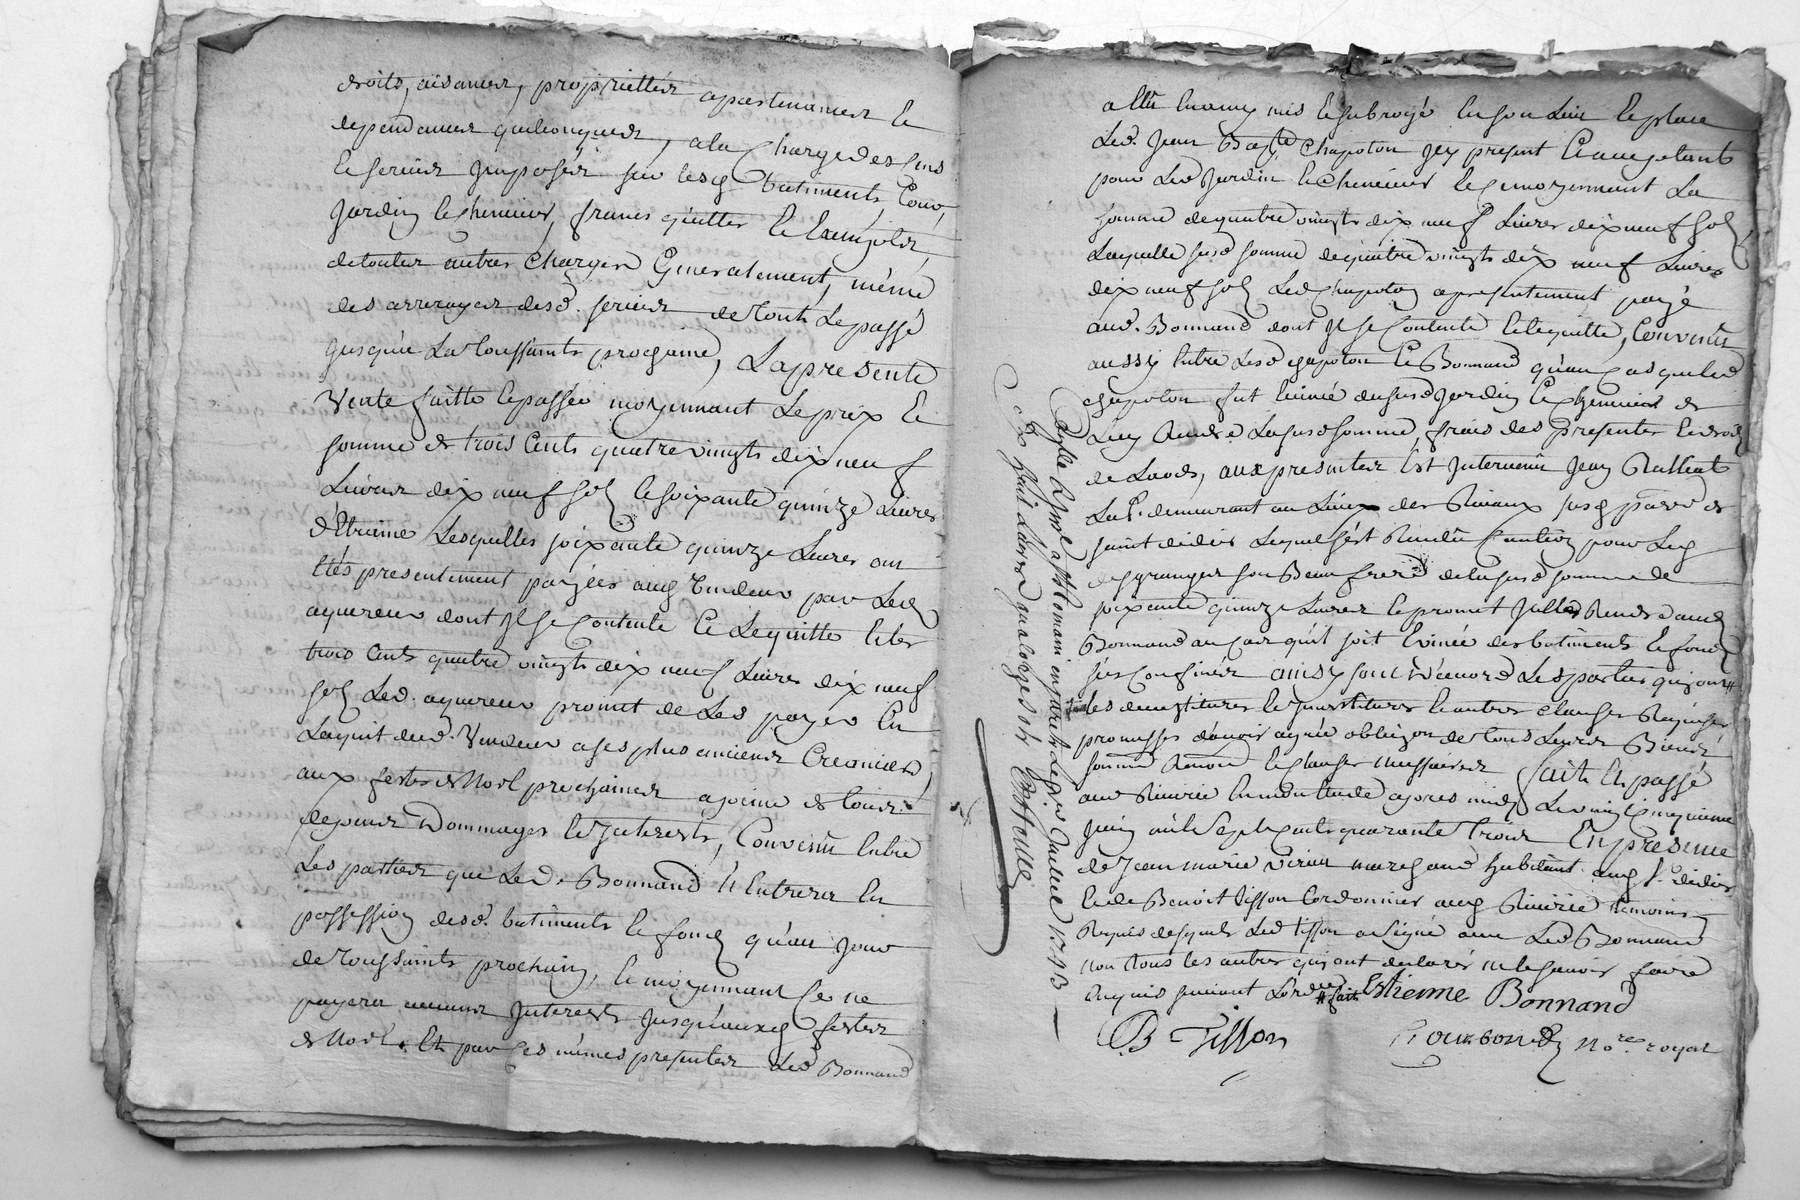 droits, aisances, propriettés apartenances et
dependances quelconques, a la charge des cens
et servis imposés sur lesq batiments Cour,
Jardin et chenevier, francs quittes et exempts
de toutes autres charges Generalement, même
des arrerages desd. servis de tout le passé
jusqu'a la toussaints prochaine, La presente
Vente faitte et passée moyennant le prix et
somme de trois cents quatre vingts dix neuf
Livres dix neuf sols et soixante quinze Livres
d'Etrienne Lesquelles soixante quinze Livres ont
étés presentement payées aud Vendeur par Led
aquereur dont Il se Contente et Le quitte et les
trois cents quatre vingts dix neuf Livres dix neuf
sols Led. aquereur promet de Les payer en
Laquit dud. Vendeur a ses plus anciens Creanciers,
aux festes de Noel prochaines a peine de tous
depens Dommages et Interests, Convenu Entre
Les parties que Led. Bonnand n'Entrera en
possession desd. batiments et fonds qu'au jour
de toussaints prochain, et moyennant Ce ne
payera aucuns Interests jusqu'auxq festes
de Noel. Et par Ces mêmes presentes Led Bonnand
a mis et subrogé En son Lieu et place
Led. Jean Bapte Chapoton Icy present Et aceptant
pour Led Jardin et Chenevier et moyennant La
somme de quatre vingts dix neuf Livres dix neuf sols
Laquelle susd somme de quatre vingts dix neuf Livres
dix neuf sols Led Chapoton a presentement payé
aud. Bonnand dont Il se Contente et le quitte, Convenu
aussy Entre Lesd Chapoton Et Bonnand qu'au cas que led
Chapoton fut Evincé dususd Jardin Et Chenevier de
Luy Rendre La susd somme, frais des presentes et droits
de Laods, aux presentes Est Intervenu Jean
demeurant au Lieu des Rivaux susq parre de
saint didier Lequel s'est Rendu Caution pour Led
desgranges son Beaufrere de la susd somme de
soixante quinze Livres et promet Rendre aud
Bonnand au Cas qu'il soit Evincé des batiments et fonds
sus Confinés ainsy sont D'acord Les parties qui ont #
les demetitures et Investitures Et autres clauses Requises
promesses d'avoir agrée obligaon de tous Leurs Biens
soumis Renon et clauses necessaires fait et passé
aud Rivirie En mon Etude apres midy Le vingt Cinquieme
Juin mil sept Cents quarante trois En presence
de Jean marie marchand habitant aud St didier
et de Benoit Tisson Cordonnier aud Rivirie temoins
Requis desquels Led Tisson a signé avec Led Bonnand
non tous les autres qui ont declarés ne le sçavoir faire
Enquis suivant Lordce # fait Estienne Bonnand
B Tisson
Bourbon no.re royal
1743